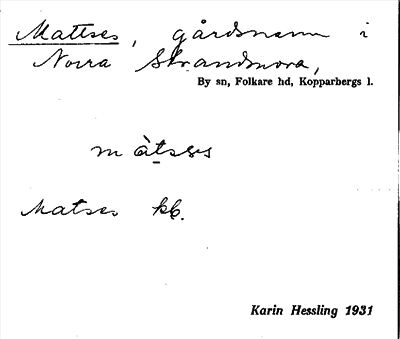 Mattses, gårdsnamn i
Norra Strandmora,
By sn, Folkare hd, Kopparbergs l.
màtsəs
Matses kb.
Karin Hessling 1931